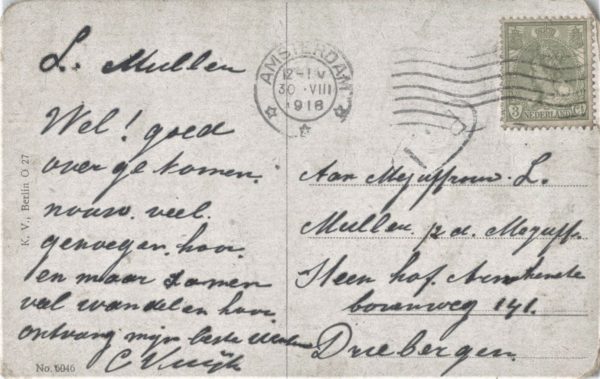 L. Mullen
Wel! goed
over gekomen.
nouw. veel.
genoegen. hoor.
en maar zamen
val wandelen hoor.
ontvang mijn beste
C Vuijk
K. V., Berlin O 27
No. 5046
AMSTERDAM
12-1 V
30 VIII
1918
3 CT
NEDERLAND
Aan Mejuffrouw. L.
Mullen p/a d. Mejuff.
Steen hof.
bovenweg 141.
Driebergen.